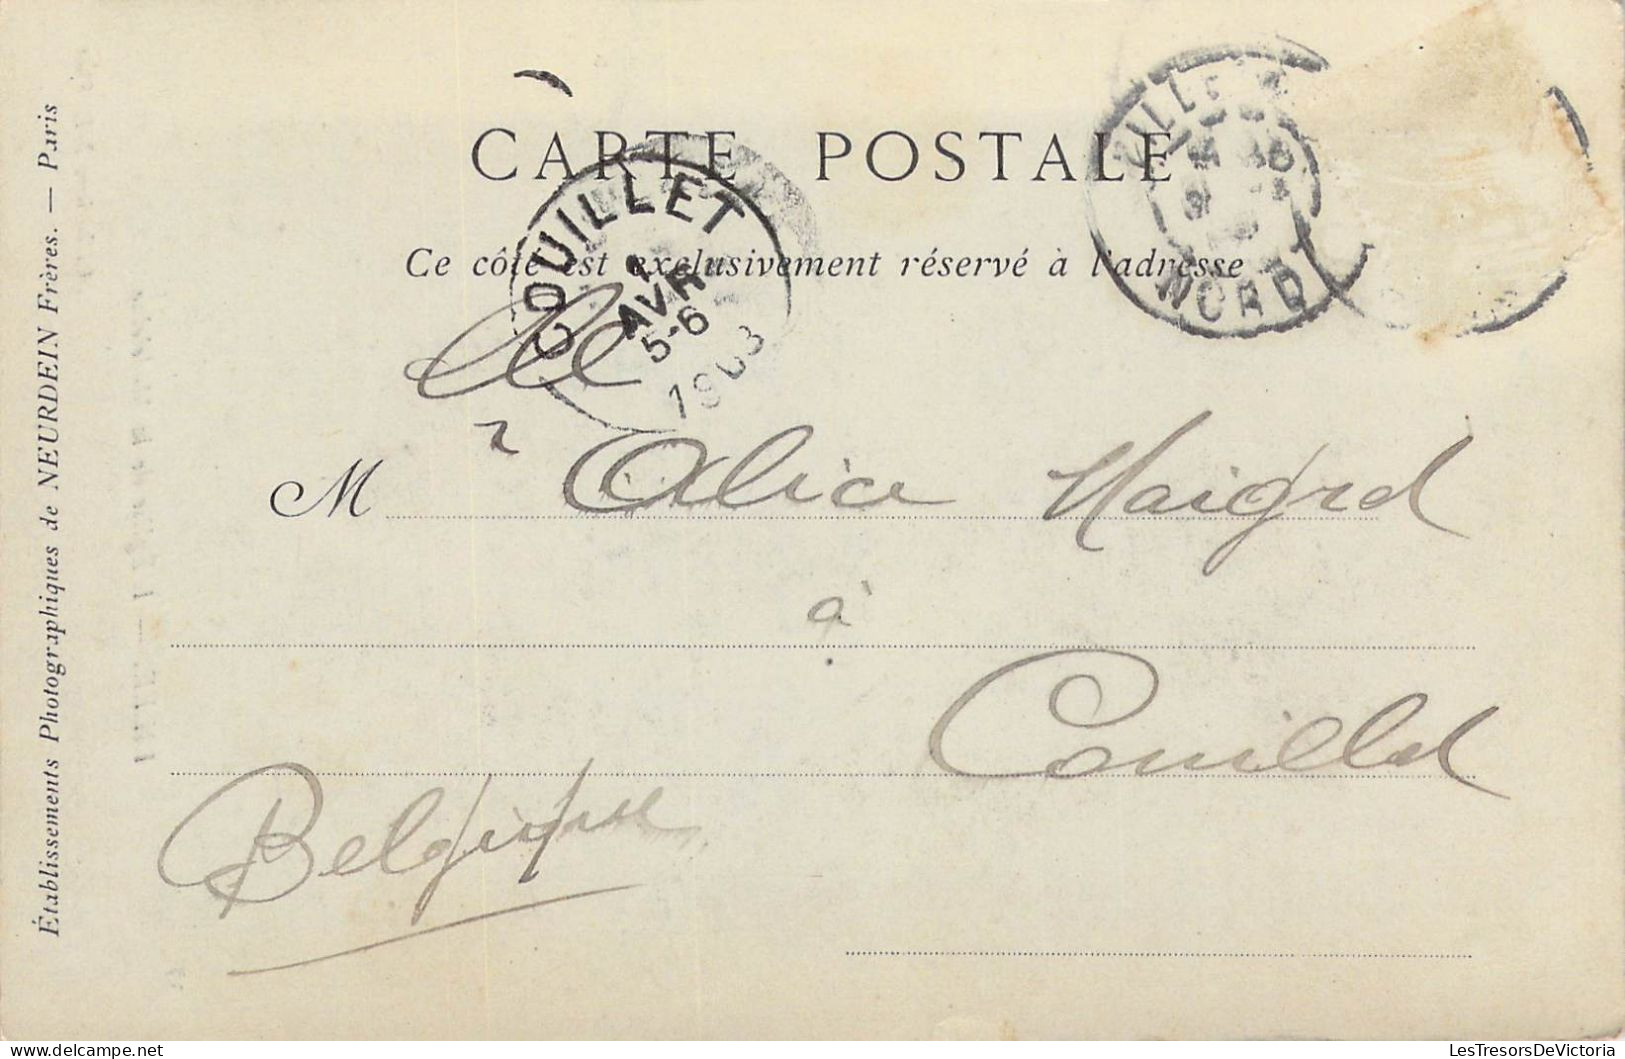 CARTE POSTALE
Ce côté est exclusivement réservé à l'adresse
COUILLET
1
AVR
5-6
1903
LILLE
NORD
lle
M Alice
à
Couillet
Belgique
Établissements Photographiques de NEURDEIN Frères. — Paris
LesTresorsDeVictoria